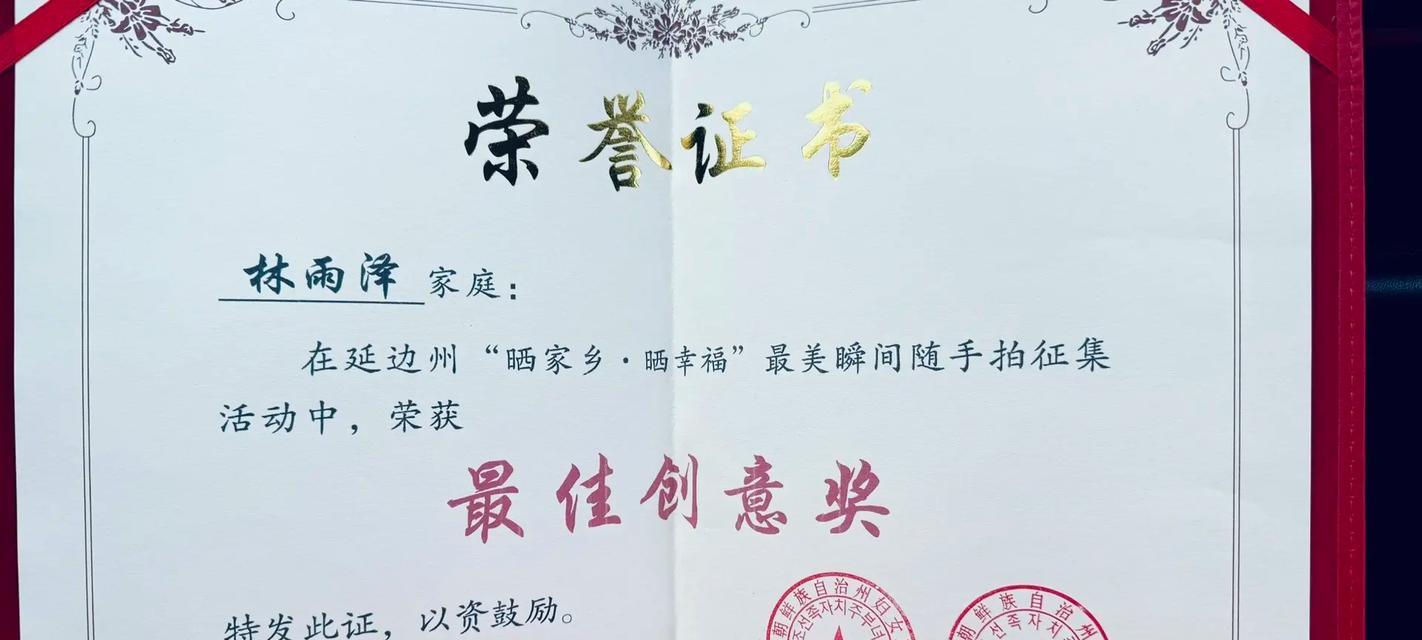 荣誉证书
林雨泽家庭：
在延边州“晒家乡·晒幸福”最美瞬间随手拍征集
活动中，荣获
最佳创意奖
特发此证，以资鼓励。
朝鲜族自治州妇女
朝鲜族自治州